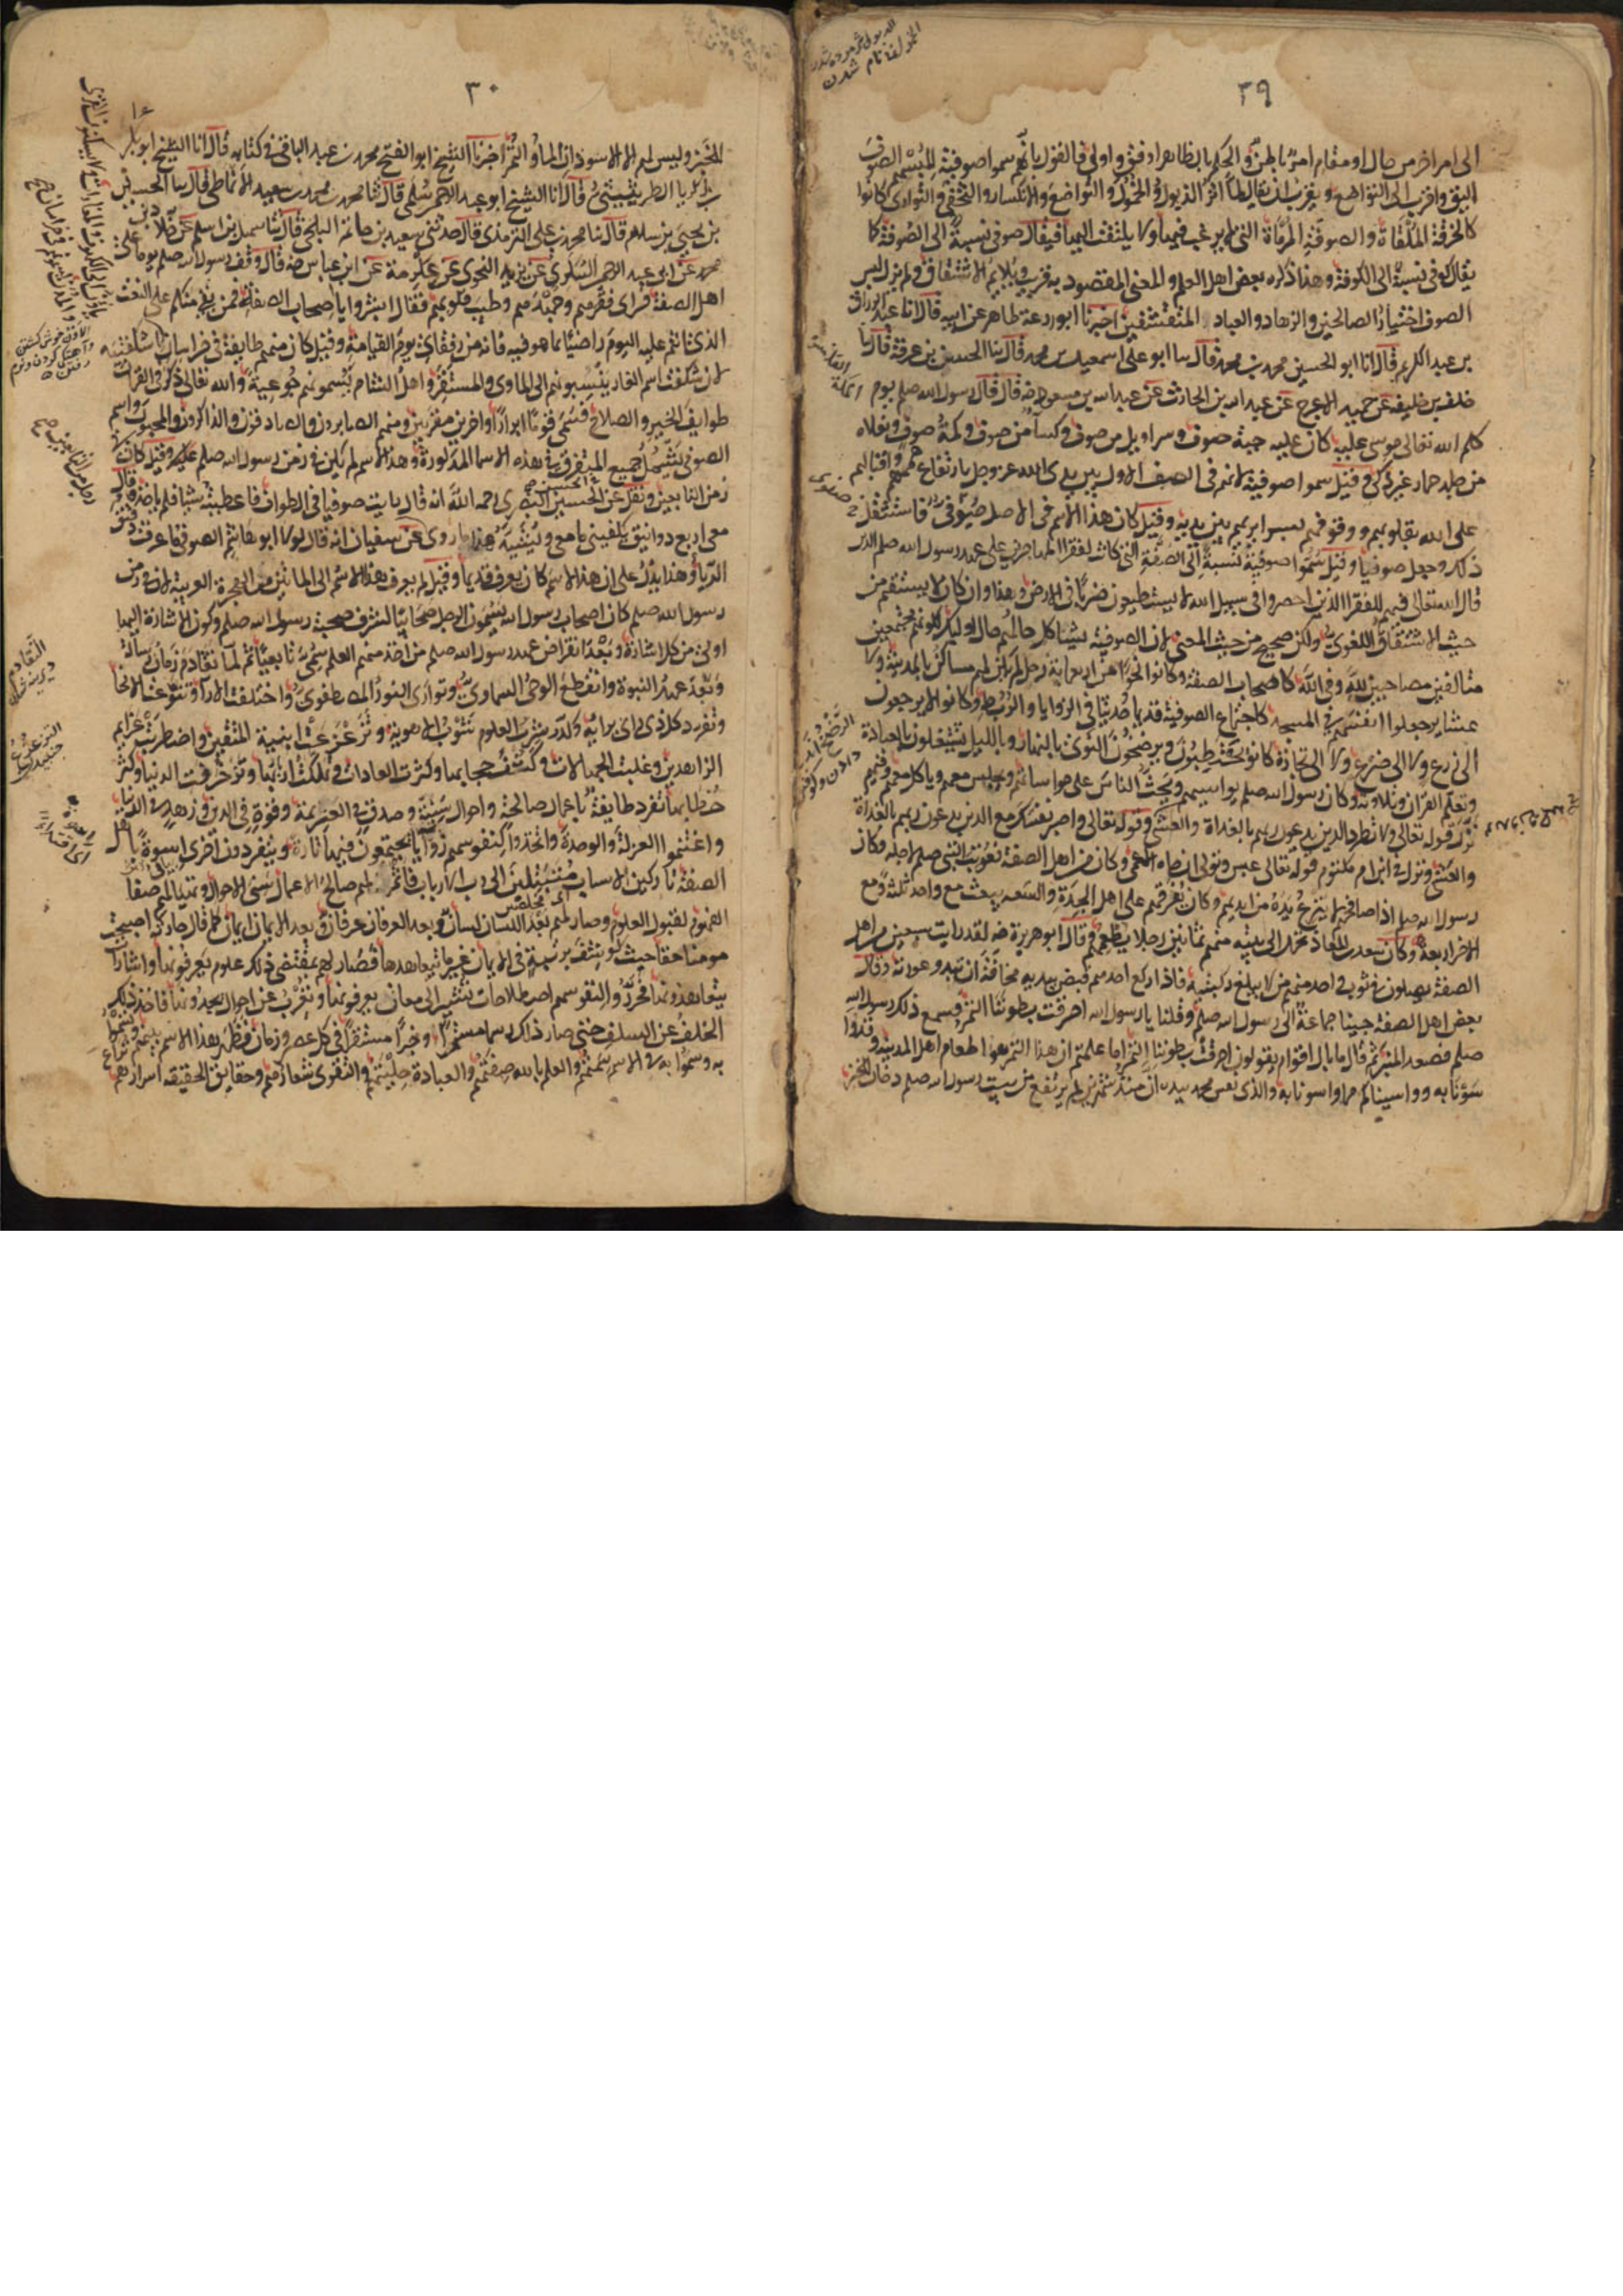 ٣٩
الى امر اخر من حال او مقام امر باطن والحكم بالظاهر اوفق واولى فالقول بانهم سموا صوفية للبسهم الصوف
اليق واقرب الى التواضع ويقرب ان يقال لما اثر الذبول والخمول والتواضع والانكسار والتخفى والتوارى كانوا
كالخرقة الملقاة والصوفة المرماة التى لا يرغب فيها ولا يلتفت اليها فيقال صوفى نسبة الى الصوفة كما
يقال كوفى نسبة الى الكوفة وهذا ذكره بعض اهل العلم والمعنى المقصود به قريب ويلايم الاشتقاق ولم يزل لبس
الصوف اختيار الصالحين والزهاد والعباد المتقشفين اخبرنا ابو زرعة طاهر عن ابيه قال انا عبد الرزاق
بن عبد الكريم قال انا ابو الحسين محمد بن محمد قال ثنا ابو على اسمعيل بن محمد قال ثنا الحسن بن عرفة قال ثنا
خلف بن خليفة عن حميد الاعرج عن عبد الله بن الحارث عن عبد الله بن مسعود رضه قال قال رسول الله صلم يوم
كلم الله تعالى موسى عليه كان عليه جبة صوف وسراويل من صوف وكساء من صوف وكمة صوف ونعلاه
من جلد حمار غير ذكى وقيل سموا صوفية لانهم فى الصف الاول بين يدى الله عز وجل بارتفاع هممهم واقبالهم
على الله بقلوبهم ووقوفهم بسرايرهم بين يديه وقيل كان هذا الاسم فى الاصل صفوى فاستثقل
ذلك وجعل صوفيا وقيل سموا صوفية نسبة الى الصفة التى كانت لفقراء المهاجرين على عهد رسول الله صلم الذين
قال الله تعالى فيهم للفقرا الذين احصروا فى سبيل الله لا يستطيعون ضربا فى الارض وهذا وان كان لا يستقيم من
حيث الاشتقاق اللغوى ولكن صحيح من حيث المعنى لان الصوفية يشاكل حالهم حال اوليك لكونهم مجتمعين
متالفين مصاحبين لله وفى الله كاصحاب الصفة وكانوا نحوا من اربعماية رجل لم يكن لهم مساكن بالمدينة ولا
عشاير جعلوا انفسهم فى المسجد كاجتماع الصوفية قديما وحديثا فى الزوايا والربط وكانوا لا يرجعون
الى زرع ولا الى ضرع ولا الى تجارة كانوا يحتطبون ويرضخون النوى بالنهار وبالليل يشتغلون بالعبادة
وتعلم القران وتلاوته وكان رسول الله صلم يواسيهم ويحث الناس على مواساتهم ويجلس معهم وياكل معهم وفيهم
نزل قوله تعالى ولا تطرد الذين يدعون ربهم بالغداة والعشى وقوله تعالى واصبر نفسك مع الذين يدعون ربهم بالغداة
والعشى ونزل فى ابن ام مكتوم قوله تعالى عبس وتولى ان جاءه الاعمى وكان من اهل الصفة فعوتب النبى صلم لاجله وكان
رسول الله صلم اذا صافحهم لا ينزع يده من ايديهم وكان يفرقهم على اهل الجدة والسعة يبعث مع واحد ثلثة ومع
الاخر اربعة وكان سعد بن المعاذ يحمل الى بيته منهم ثمانين رجلا يطعمهم وقال ابو هريرة رضه لقد رايت سبعين من اهل
الصفة يصلون فى ثوب واحد منهم من لا يبلغ ركبتيه فاذا ركع احدهم قبض بيديه مخافة ان تبدو عورته وقال
بعض اهل الصفة جينا جماعة الى رسول الله صلم وقلنا يا رسول الله احرقت بطوننا التمر فسمع ذلك رسول الله
صلم فصعد المنبر ثم قال ما بال اقوام يقولون احرقت بطوننا التمر اما علمتم ان هذا التمر هو طعام اهل المدينة وقد وا
سونا به وواسيناكم مما واسونا به والذى نفس محمد بيده ان منذ شهرين لم يرتفع من بيت رسول الله صلم دخان للخبز
٣٠
للخبز وليس لهم الا الاسودان الماء والتمر اخبرنا الشيخ ابو الفتح محمد بن عبد الباقى فى كتابه قال انا الشيخ ابو بكر
بن زكريا الطريثيثى قال انا الشيخ ابو عبد الرحمن السلمى قال ثنا محمد بن محمد بن سعيد الانماطى قال ثنا الحسن
بن يحيى بن سلام قال ثنا محمد بن على الترمذى قال حدثنى سعيد بن حاتم البلخى قال ثنا سهل بن اسلم عن خلاد بن
محمد عن ابى عبد الرحمن السكرى عن يزيد النحوى عن عكرمة عن ابن عباس رضه قال وقف رسول الله صلم يوما على
اهل الصفة فراى فقرهم وجهدهم وطيب قلوبهم فقال ابشروا يا اصحاب الصفة فمن بقى منكم على النعت
الذى انتم عليه اليوم راضيا بما هو فيه فانه من رفقاى يوم القيامة وقيل كان منهم طايفة فى خراسان
لان شكفت اسم الغار ينسبونهم الى الماوى والمستقر واهل الشام يسمونهم جوعية والله تعالى ذكر فى القران
طوايف الخير والصلاح فسمى قوما ابرارا واخرين مقربين ومنهم الصابرون والصادقون والذاكرون والمحبون واسم
الصوفى يشتمل جميع المتفرق فى هذه الاسما المذكورة وهذا الاسم لم يكن فى زمن رسول الله صلم عليه وقيل كان فى
زمن التابعين ونقل عن الحسن البصرى رحمه الله انه قال رايت صوفيا فى الطواف فاعطيته شيا فلم ياخذه وقال
معى اربع دوانيق يكفينى ما معى ويشيد هذا ما روى عن سفيان انه قال لولا ابو هاشم الصوفى ما عرفت دقيق
الريا وهذا يدل على ان هذا الاسم كان يعرف قديما وقيل لم يعرف هذا الاسم الى المائتين من الهجرة العربية لان فى زمن
رسول الله صلم كان اصحاب رسول الله يسمون الرجل صحابيا لشرف صحبة رسول الله صلم وكون الاشارة اليها
اولى من كل اشارة وبعد انقراض عهد رسول الله صلم من اخذ منهم العلم سمى تابعيا ثم لما تقادم زمان الرسالة
وبعد عهد النبوة وانقطع الوحى السماوى وتوارى النور المصطفوى واختلفت الارا وتنوعت الانحا
وتفرد كل ذى راى برايه وكدر شرب العلوم شوب الاهوية وتزعزعت ابنية المتقين واضطربت عزايم
الزاهدين وغلبت الجهالات وكثف حجابها وكثرت العادات وتملكت اربابها وتزخرفت الدنيا وكثر
خطابها تفرد طايفة باعمال صالحة واحوال سنية وصدق فى العزيمة وقوة فى الدين وزهدوا فى الدنيا
واغتنموا العزلة والوحدة واتخذوا لنفوسهم زوايا يجتمعون فيها تارة وينفردون اخرى اسوة باهل
الصفة تاركين الاسباب متبتلين الى رب الارباب فاثمر لهم صالح الاعمال سنى الاحوال وتهيا لهم صفا
الفهوم لقبول العلوم وصار لهم بعد اللسان لسان وبعد العرفان عرفان وبعد الايمان ايمان كما قال حارثة اصبحت
مومنا حقا حيث كوشف برتبة فى الايمان غير ما يتعاهدها فصار لهم بمقتضى ذلك علوم يعرفونها واشارات
يتعاهدونها فحرروا لنفوسهم اصطلاحات تشير الى معان يعرفونها وتعرب عن احوال يجدونها فاخذ ذلك
الخلف عن السلف حتى صار ذلك رسما مستمرا وخبرا مستقرا فى كل عصر وزمان فظهر هذا الاسم بينهم وتسموا
به وسموا به فالاسم سمتهم والعلم بالله صفتهم والعبادة حليتهم والتقوى شعارهم وحقايق الحقيقة اسرارهم